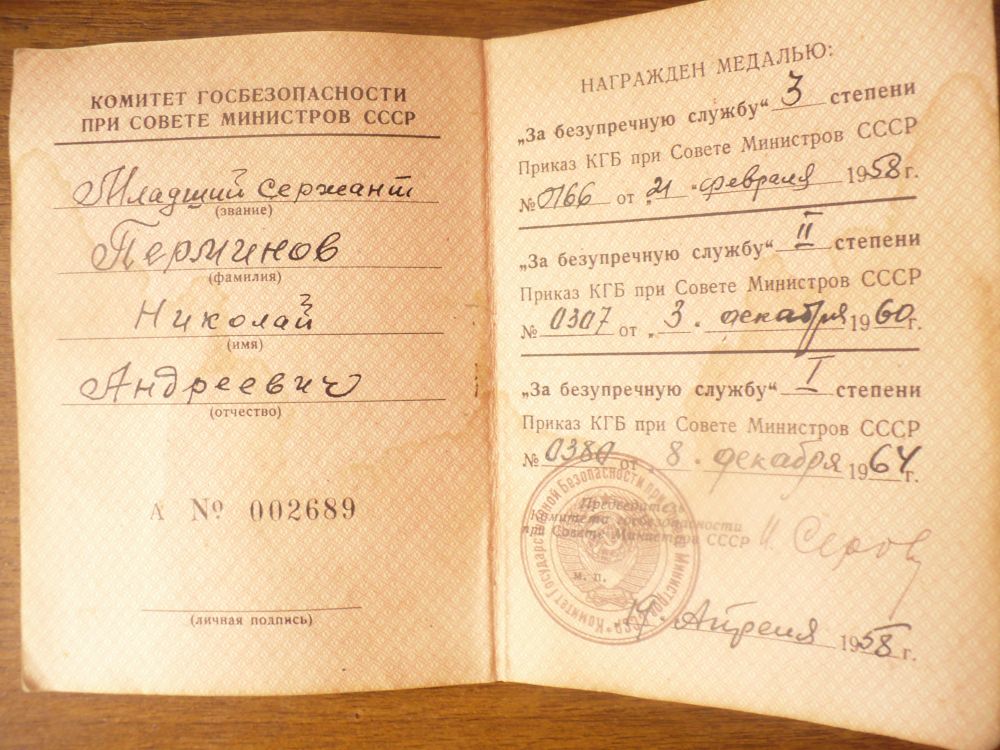 КОМИТЕТ ГОСБЕЗОПАСНОСТИ
ПРИ СОВЕТЕ МИНИСТРОВ СССР
Младший сержант
(звание)
Перминов
(фамилия)
Николай
(имя)
Андреевич
(отчество)
А № 002689
(личная подпись)
НАГРАЖДЕН МЕДАЛЬЮ:
„За безупречную службу“ 3 степени
Приказ КГБ при Совете Министров СССР
№ 0166 от „21“ февраля 1958 г.
„За безупречную службу“ II степени
Приказ КГБ при Совете Министров СССР
№ 0307 от „3“ декабря 1960 г.
„За безупречную службу“ I степени
Приказ КГБ при Совете Министров СССР
№ 0380 от „8“ декабря 1964 г.
Председатель
Комитета госбезопасности
при Совете Министров СССР И. Серов
м. п.
Апреля 1958 г.
Комитет Государственной Безопасности при Министров СССР